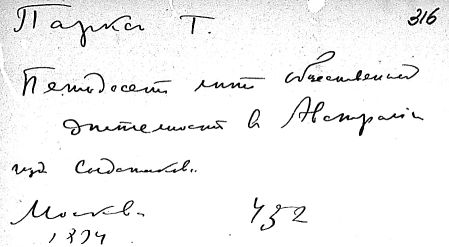 Паркс Г. 316
Пятьдесят лет общественной
деятельности в Австралии
изд. Солдатенкова.
Москва 452
1894